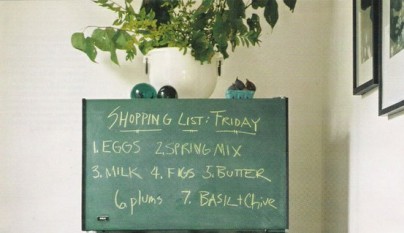 SHOPPING LIST: FRIDAY
1. EGGS 2. SPRING MIX
3. MILK 4. FIGS 5. BUTTER
6. plums 7. BASIL + Chive